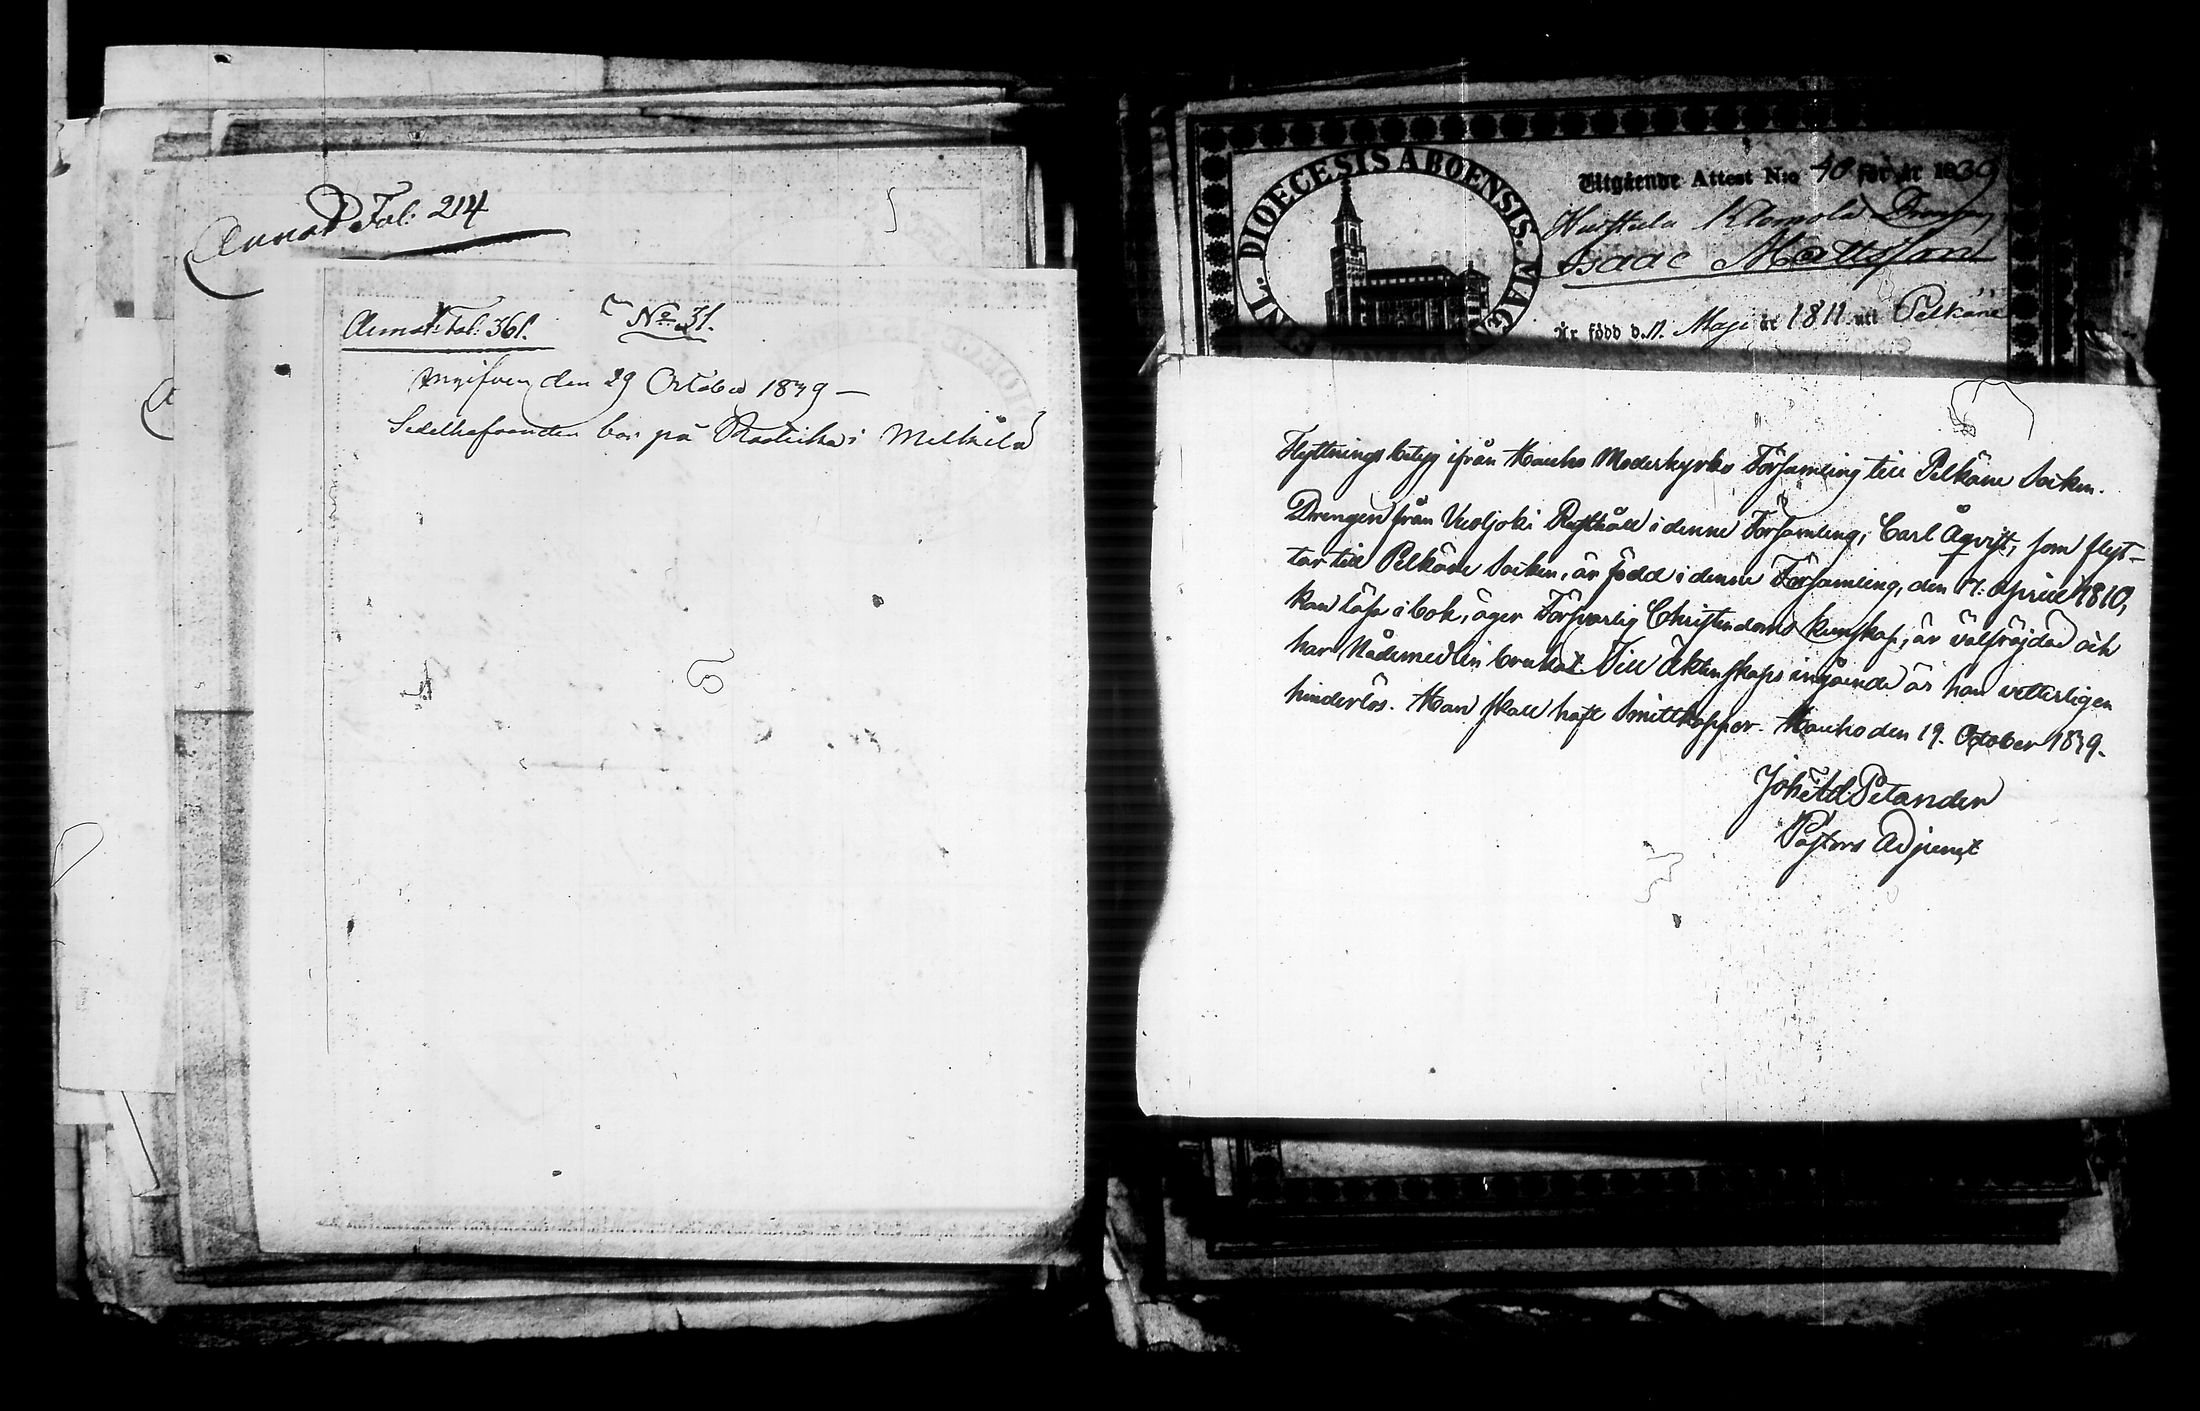 Annot. Fol: 214
Annot: Fol: 361.
No 31.
Ingifven den 29 October 1839 —
Sedelhafvanden bor på i Mälkilä
DIOECESIS ABOENSIS. MAG
Utgående Attest N:o 40 för år 1839
Drengen
Isaac Mattsson
Är född d. 11. Maji år 1811 uti Pelkäne
Flyttnings betyg ifrån Hauho Moderkyrko Församling till Pelkäne Socken.
Drengen från Vuoljoki Rusthåll i denne Församling, Carl Åqvist, som flyt-
tar till Pelkäne Socken, är född i denne Församling, den 17. April 1810,
kan läsa i bok, äger Försvarlig Christendoms kunskap, är välfräjdad och
har Nådemedlen brukat. Till Äktenskaps ingående är han vetterligen
hinderlös. Han skall haft Smittkoppor. Hauho den 19. October 1839.
Joh: Ad: Petander
Pastors Adjunct